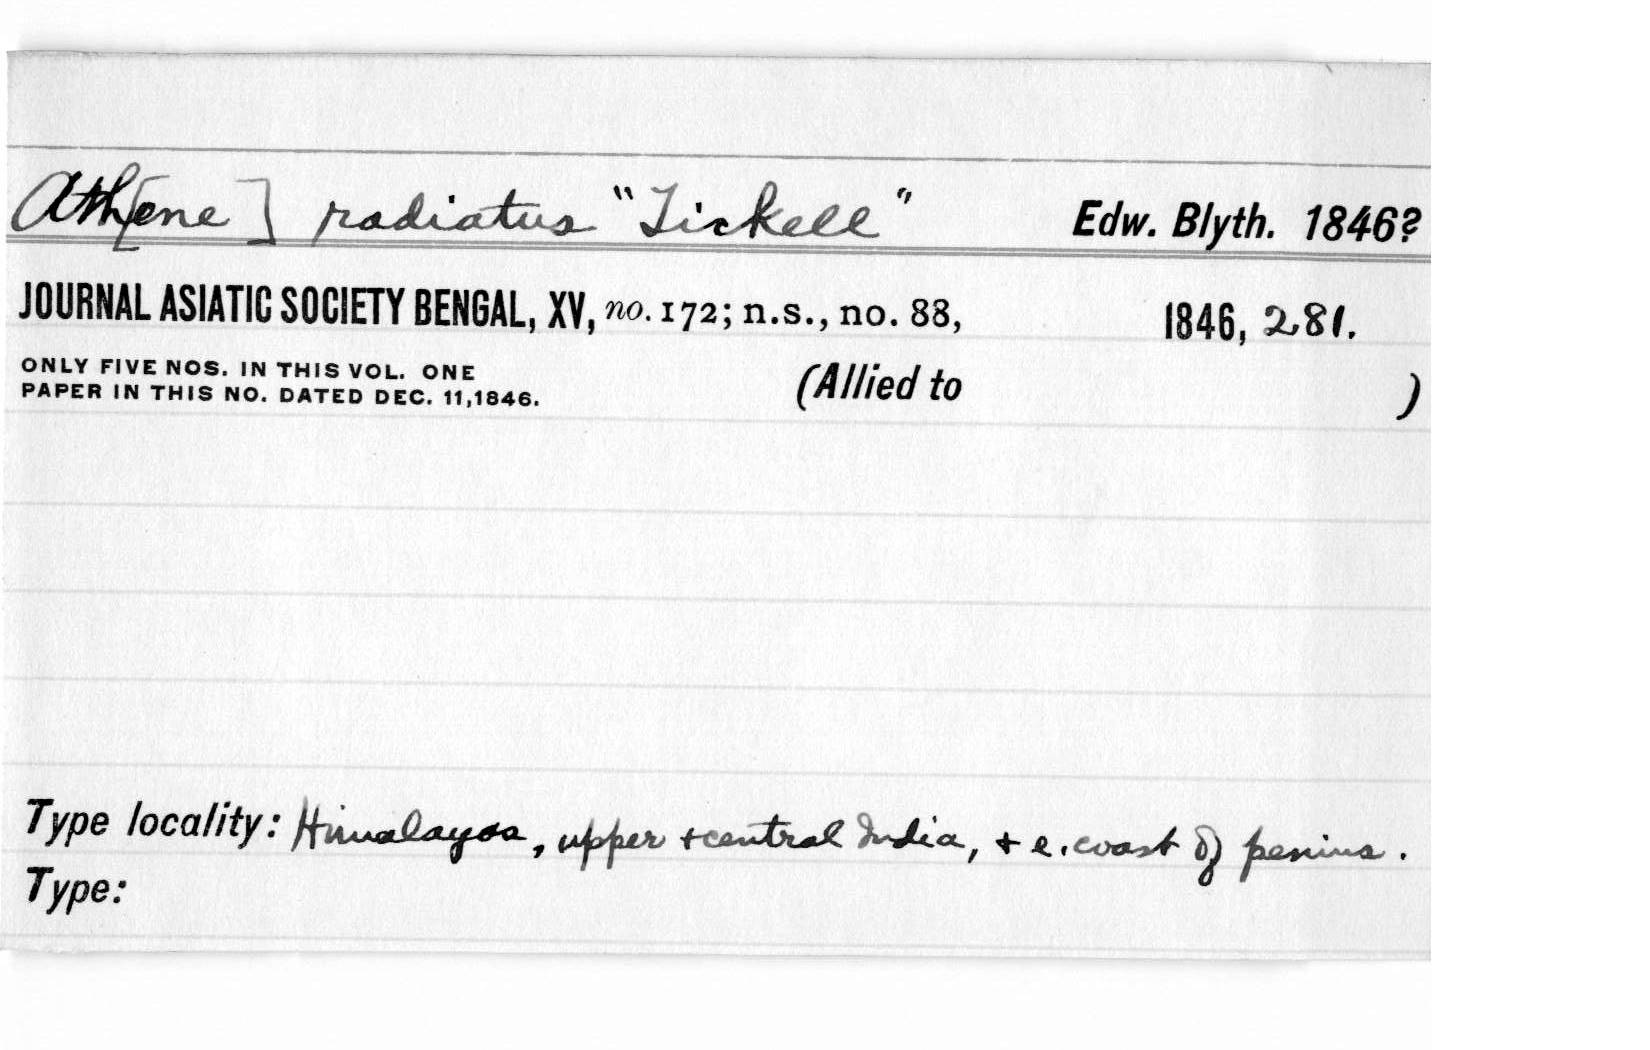 Ath[ene] radiatus "Tickell" Edw. Blyth. 1846?
JOURNAL ASIATIC SOCIETY BENGAL, XV, no. 172; n.s., no. 88, 1846, 281.
ONLY FIVE NOS. IN THIS VOL. ONE
PAPER IN THIS NO. DATED DEC. 11,1846.
(Allied to )
Type locality: Himalayas, upper + central India, + e. coast of penins.
Type: